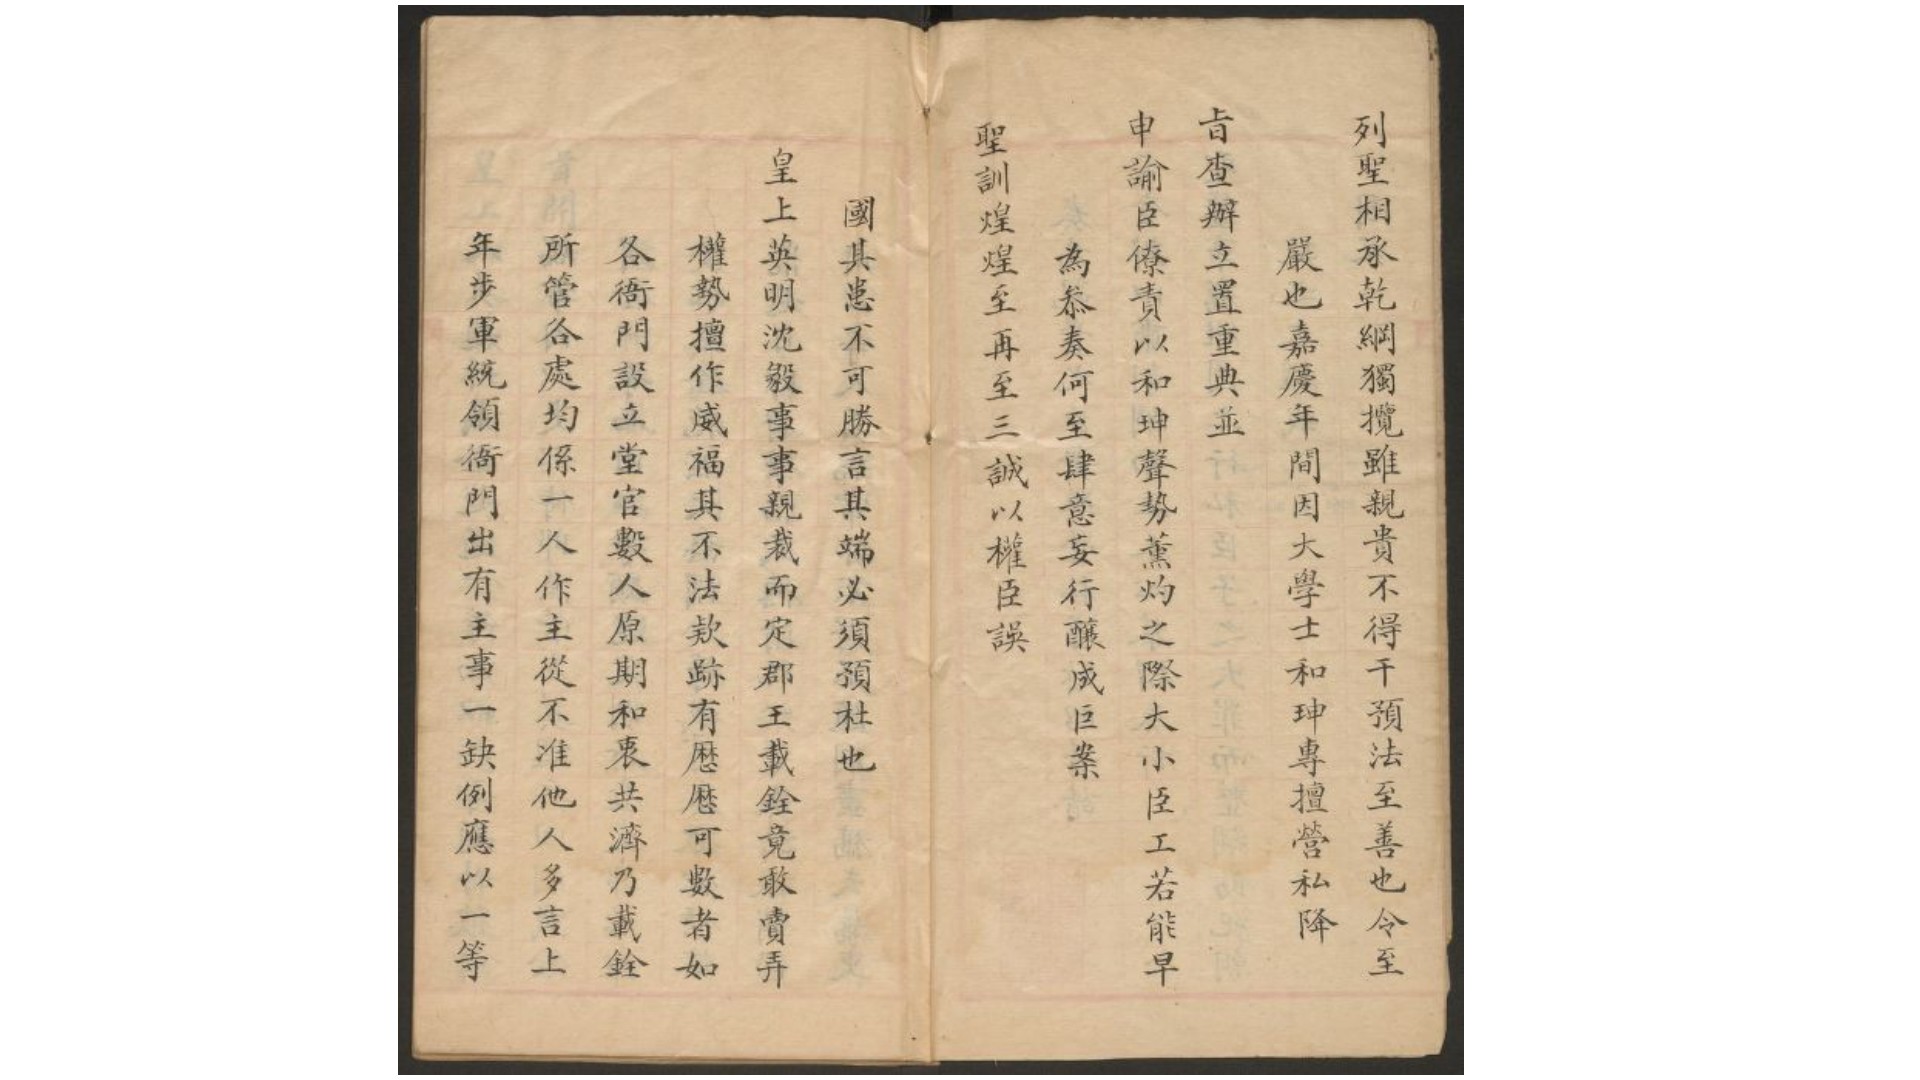 列聖相承乾綱獨攬雖親貴不得干預法至善也令至
嚴也嘉慶年間因大學士和珅專擅營私降
旨查辦立置重典並
申諭臣僚責以和珅聲勢薰灼之際大小臣工若能早
為叅奏何至肆意妄行釀成巨案
聖訓煌煌至再至三誠以權臣誤
國其患不可勝言其端必須預杜也
皇上英明沈毅事事親裁而定郡王載銓竟敢賣弄
權勢擅作威福其不法款跡有歷歷可數者如
各衙門設立堂官數人原期和衷共濟乃載銓
所管各處均係一人作主從不准他人多言上
年步軍統領衙門出有主事一缺例應以一等